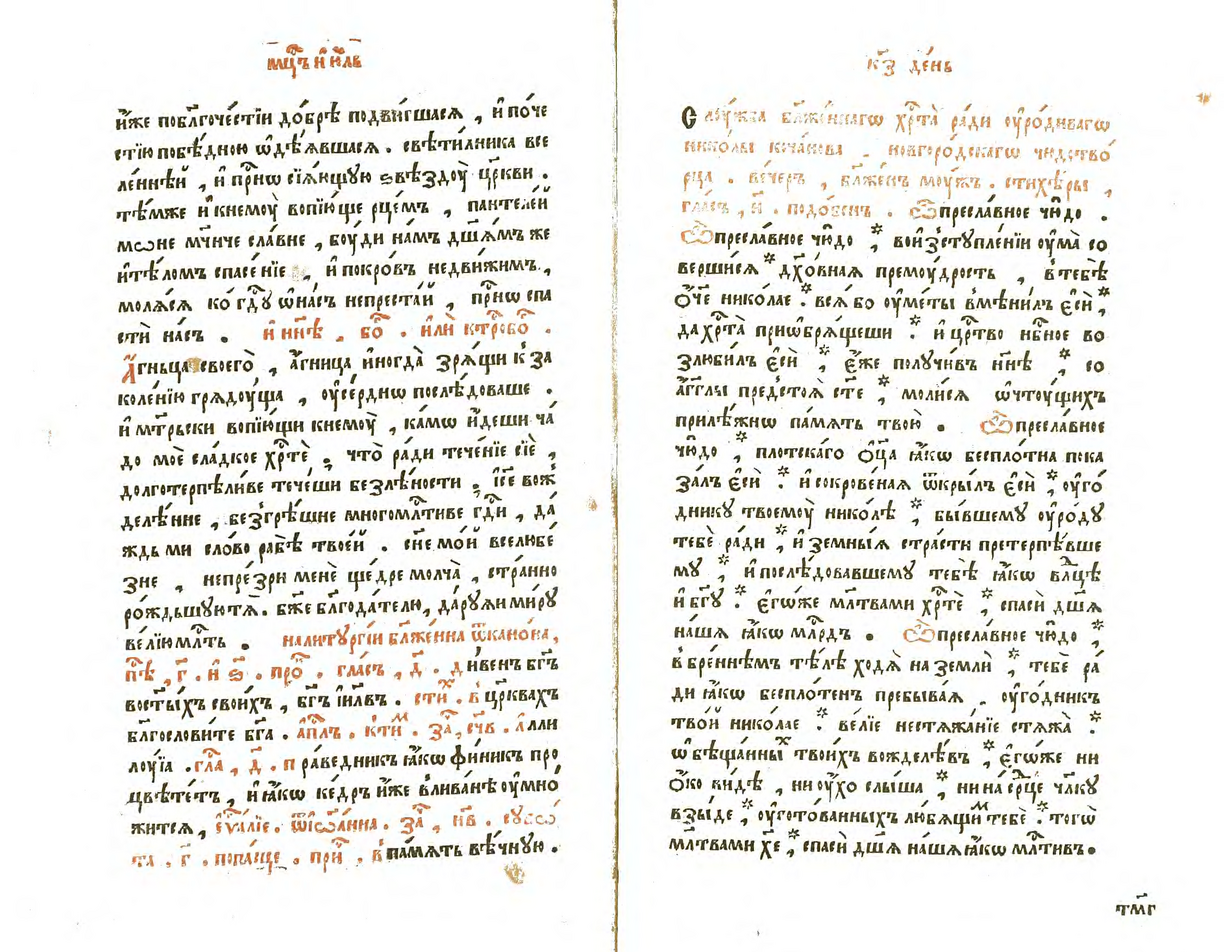 мц҃ъ и҆ю́лъ
и҆́же побл҃гоче́стїи до́брѣ подви́гшасѧ , и҆ по́че
стїю побѣ́дною ѡ҆дѣ́ѧвшасѧ . свѣти́лника все
ле́ннѣй , и҆ при́снѡ сїѧ́ющую ѕвѣздоу̀ цр҃кви .
тѣ́мже и҆ кнемоу̀ вопїю́ще рце́мъ , пантеле́й
мѡне мч҃нче сла́вне , боу́ди на́мъ дш҃а́мъ же
и҆тѣло́мъ спасе́нїе , и҆ покро́въ недви́жимъ ,
молѧ́сѧ ко́ гдⷭ҇ꙋ ѡ҆на́съ непреста́й , при́снѡ спа
стѝ на́съ . и҆ нн҃ѣ . бо҃ . и҆лѝ кртⷭ҇обо҃ .
А҆́гньца своего̀ , а҆́гница и҆ногда̀ зрѧ́щи к̾ за
коле́нїю грѧдоу́ща , оу҆се́рднѡ послѣ́доваше .
и҆ мт҃рьски вопїю́щи кнемоу̀ , ка́мѡ и҆́деши ча́
до моѐ сла́дкое хрⷭ҇тѐ , что̀ ра́ди тече́нїе сїѐ ,
долготерпѣли́ве тече́ши без̾лѣ́ности . і҆с҃е вож
делѣ́нне , без̾грѣ́шне многомлⷭ҇тиве гдⷭ҇и , да́
ждь ми сло́во рабѣ̀ твое́й . сн҃е мо́й вселюбе́
зне , непре́зри менѐ ще́дре молча̀ , стра́нно
ро́ждьшуютѧ . бж҃е бл҃года́телю , да́рꙋѧи ми́рꙋ
ве́лїю млⷭ҇ть . налитꙋргі́и бл҃же́нна ѿкано́на ,
пѣ́ , г҃ . и҆ ѕ҃ . про̑ . гла́съ , д҃ . ди́венъ бг҃ъ
восты́хъ свои́хъ , бг҃ъ і҆и҃лвъ . сти́х . в̾ цр҃квахъ
бл҃гослови́те бг҃а . а҆пⷭ҇лъ . кти́м . за̑ , сч҃в . а҆лли
лоу́їа . гла̑ , д҃ . праведникъ ꙗ҆́кѡ фи́никъ про
цвѣте́тъ , и҆ ꙗ҆́кѡ ке́дръ и҆́же влива́нѣ оу҆мно́
житсѧ , є҆ѵⷢ҇а́лїе . ѿі҆ѡа́нна . за̑ , нв҃ . сꙋббѡ́
та , г҃ . попа́сще . при̑ , в̾па́мѧть вѣ́чную .
кз҃ де́нь
Слоу́жба бл҃же́ннагѡ хрⷭ҇та̀ ра́ди оу҆ро́дивагѡ
нико́лы коча́нова , новгоро́дскагѡ чюдотво́
рца . ве́черъ , бл҃же́нъ моу́жъ . стихѣ́ры ,
гла́съ , и҃ . подо́бенъ . Ѽпресла́вное чю́до .
Ѽпресла́вное чю́до , вои҆з̾стꙋпле́нїи оу҆ма̀ со
верши́сѧ дꙋхо́внаѧ премоу́дрость , в̾тебѣ̀
о҆́ч҃е нико́лае . всѧ́ бо оу҆ме́ты в̾мѣни́лъ є҆сѝ ,
да хрⷭ҇та̀ приѡ҆брѧ́щеши . и҆ црⷭ҇тво нбⷭ҇ное во
злюби́лъ є҆сѝ , є҆́же полꙋчи́въ нн҃ѣ , со
а҆́гг҃лы пред̾стоѧ̀ ст҃е , моли́сѧ ѡ҆чтоу́щихъ
прилѣ́жнѡ па́мѧть твою̀ . Ѽпресла́вное
чю́до , пло́тскаго о҆ц҃а̀ ꙗ҆́кѡ беспло́тна пока
за́лъ є҆сѝ . и҆ сокрове́наѧ ѿкры́лъ є҆сѝ , оу҆го́
дникꙋ твоемоу̀ нико́лѣ , бы́вшемꙋ оу҆ро́дꙋ
тебѐ ра́ди , и҆ земны́ѧ стра́сти претерпѣ́вше
мꙋ , и҆ послѣ́довавшемꙋ тебѣ̀ ꙗ҆́кѡ влⷣцѣ
и҆ бг҃ꙋ . є҆гѡ́же мл҃твами хрⷭ҇тѐ , спасѝ дш҃а
на́шѧ ꙗ҆́кѡ млⷭ҇рдъ . Ѽпресла́вное чю́до ,
в̾ бре́ннѣмъ тѣ́лѣ ходѧ̀ на землѝ , тебѐ ра́
ди ꙗ҆́кѡ беспло́тенъ пребыва́ѧ , оу҆го́дникъ
тво́й нико́лае . ве́лїе нестѧжа́нїе стѧжа̀
ѡ҆бѣща́нных твои́хъ вожделѣ́въ , є҆гѡ́же ни
о҆́ко ви́дѣ , ни оу҆́хо слы́ша , ни на срⷣце чл҃кꙋ
взы́де , оу҆гото́ванныхъ лю́бѧщим тебѐ . тогѡ̀
мл҃твами хе҃ , спасѝ дш҃а на́шѧ ꙗ҆́кѡ млⷭ҇тивъ .
тм҃г